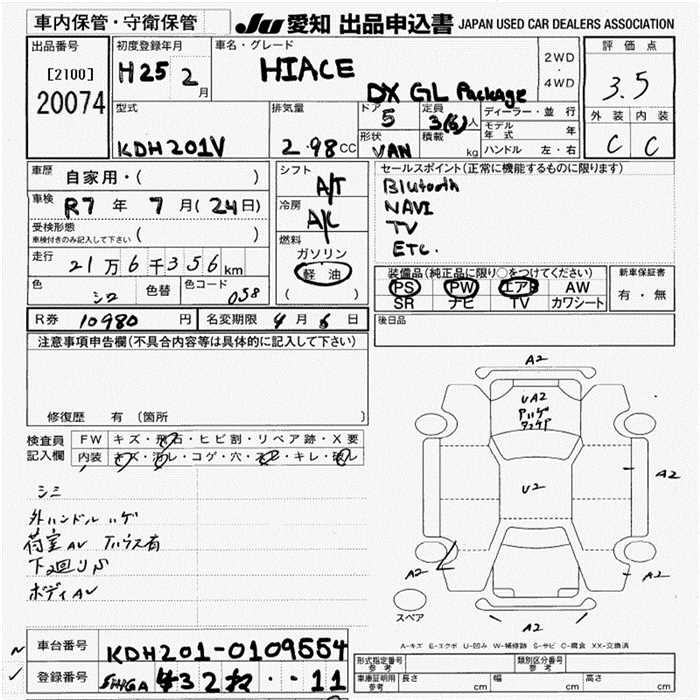 車内保管・守衛保管
JU 愛知 出品申込書 JAPAN USED CAR DEALERS ASSOCIATION
出品番号
[2100]
20074
初度登録年月
H25 2 月
車名・グレード
HIACE
DX GL Package
2WD
・
4WD
評価点
3.5
外装 内装
C C
型式
KDH201V
排気量
2.98 CC
ドア
5
定員
3(6)人
形状
VAN
積載
kg
ディーラー・並行
モデル年式 年
ハンドル 左・右
車歴
自家用・( )
車検
R7 年 7 月(24日)
受検形態
車検付きのみ記入して下さい ( )
走行
21万6千356km
色
シロ
色替
色コード
058
シフト
A/T
冷房
A/C
燃料
ガソリン
軽油
( )
セールスポイント(正常に機能するものに限ります)
Blutooth
NAVI
TV
ETC.
装備品(純正品に限り○をつけてください)
PS PW エアB AW
SR ナビ TV カワシート
新車保証書
有・無
R券 10980 円
名変期限 9月6日
後日品
注意事項申告欄(不具合内容等は具体的に記入して下さい)
修復歴 有 (箇所
検査員
記入欄
FW キズ・飛石・ヒビ割・リペア跡・X要
内装 キズ・汚レ・コゲ・穴・スレ・キレ・破レ
シミ
外ハンドルハゲ
荷室AU
下廻りS
ボディAU
A2
UA2
A2
U2
A2
A2
A2
スペア
A-キズ E-エクボ U-凹み W-補修跡 S-サビ C-腐食 XX-交換済
車台番号
KDH201-0109554
登録番号
SHIGA 432 ・・11
形式指定番号
参考
類別区分番号
参考
車庫証明用
参考
長さ cm
幅 cm
高さ cm